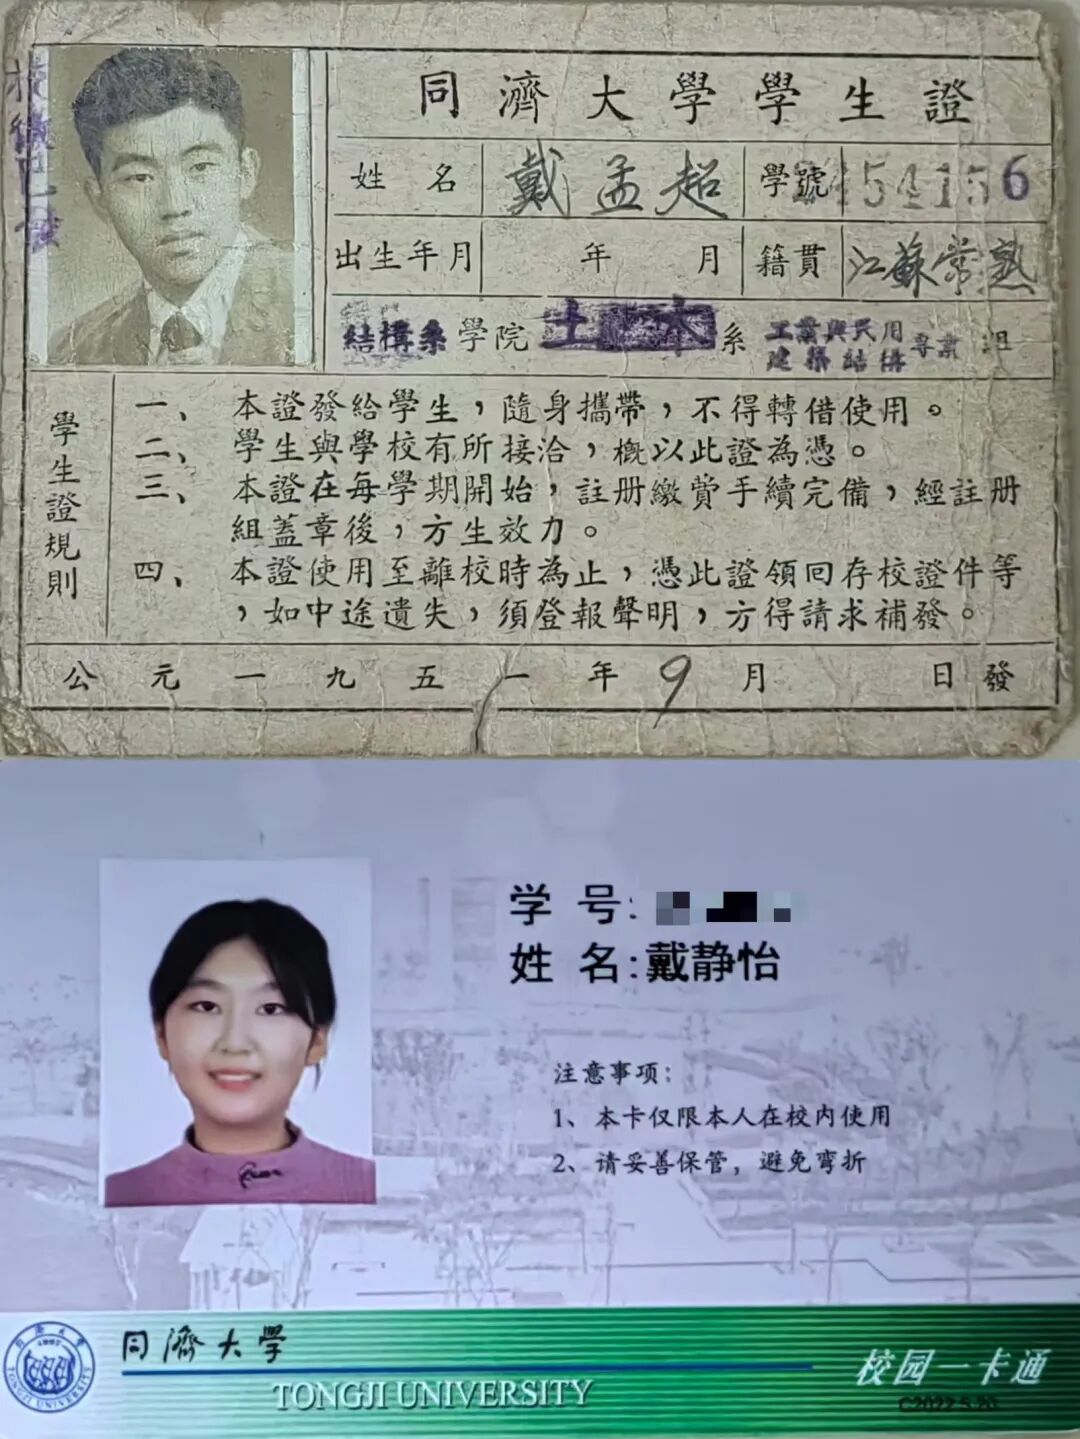 校徽已發
同濟大學學生證
姓名 戴孟超 學號 154156
出生年月 年 月 籍貫 江蘇常熟
結構系 學院 土木 系 工業與民用建築結構專業 組
學生證規則
一、本證發給學生，隨身攜帶，不得轉借使用。
二、學生與學校有所接洽，概以此證為憑。
三、本證在每學期開始，註册繳費手續完備，經註册
組蓋章後，方生效力。
四、本證使用至離校時為止，憑此證領回存校證件等
，如中途遺失，須登報聲明，方得請求補發。
公元一九五一年9月 日發
学号:
姓名:戴静怡
注意事项:
1、本卡仅限本人在校内使用
2、请妥善保管，避免弯折
同濟大學
TONGJI UNIVERSITY
校园一卡通
C2022.5.20